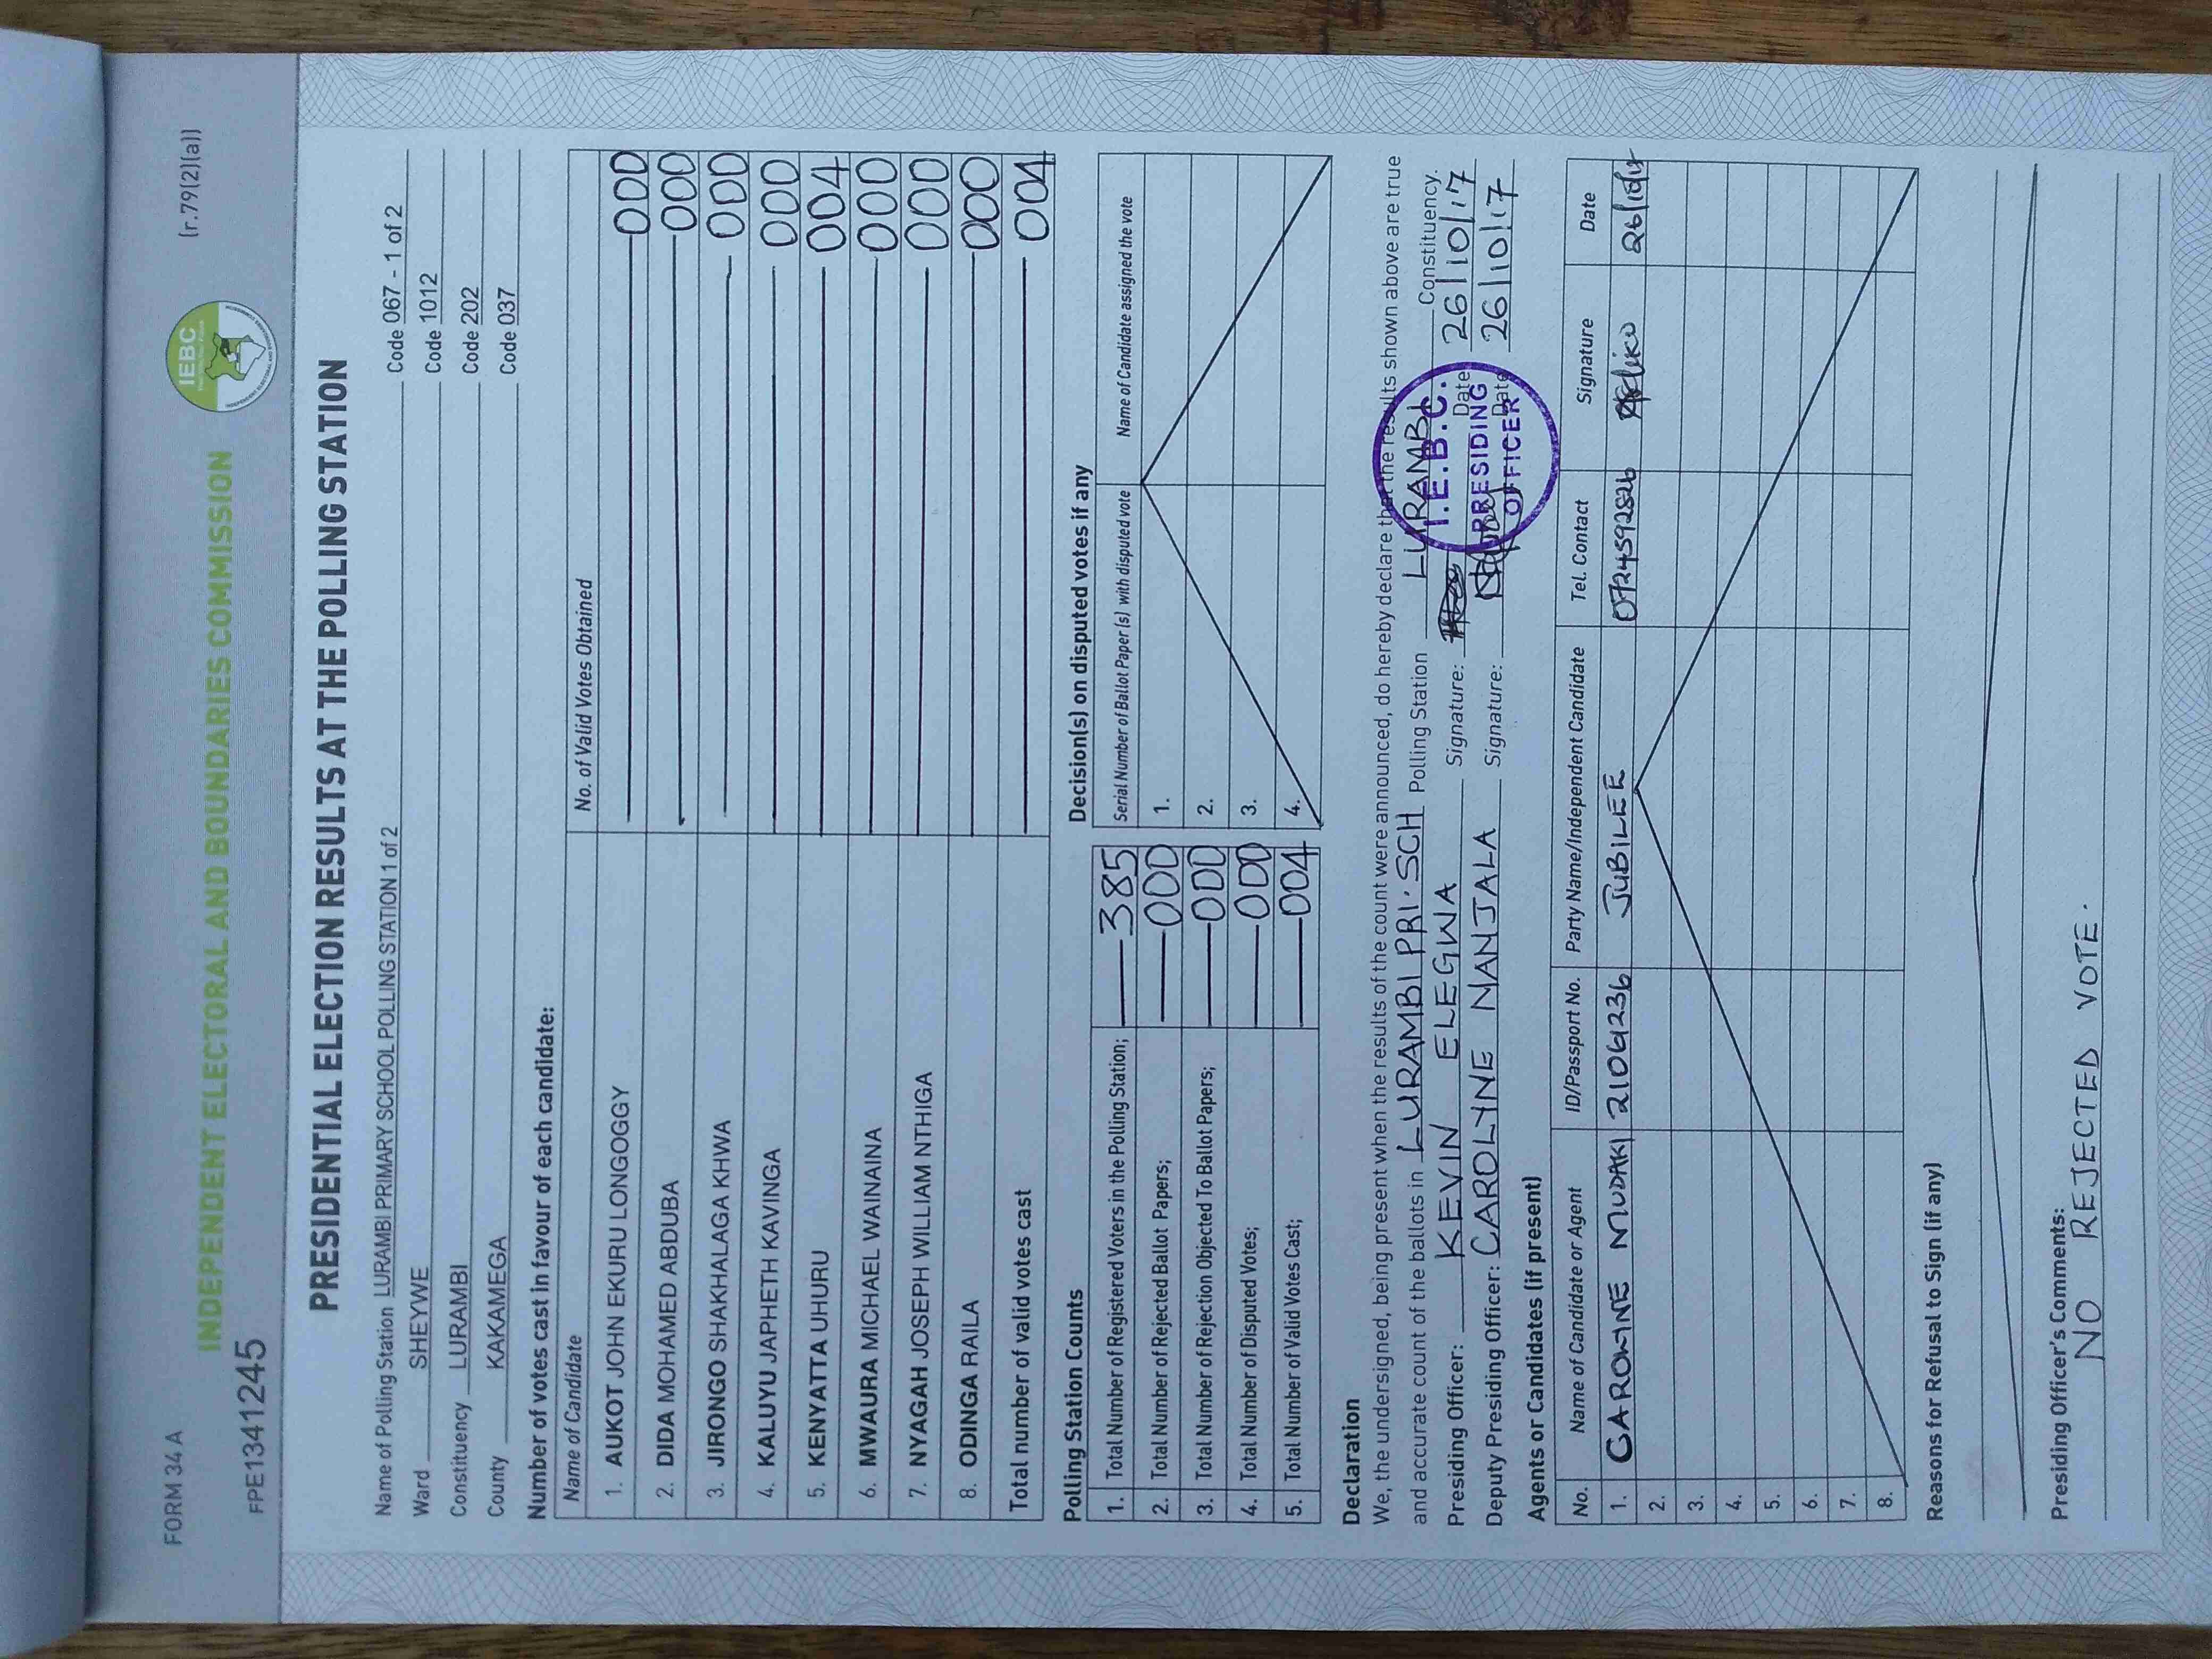 FORM 34 A
[r.79(2)(a)]
IEBC
INDEPENDENT ELECTORAL AND BOUNDARIES COMMISSION
FPE1341245
PRESIDENTIAL ELECTION RESULTS AT THE POLLING STATION
Name of Polling Station LURAMBI PRIMARY SCHOOL POLLING STATION 1 of 2 Code 067 - 1 of 2
Ward SHEYWE Code 1012
Constituency LURAMBI Code 202
County KAKAMEGA Code 037
Number of votes cast in favour of each candidate:
Name of Candidate No. of Valid Votes Obtained
1. AUKOT JOHN EKURU LONGOGGY 000
2. DIDA MOHAMED ABDUBA 000
3. JIRONGO SHAKHALAGA KHWA 000
4. KALUYU JAPHETH KAVINGA 000
5. KENYATTA UHURU 004
6. MWAURA MICHAEL WAINAINA 000
7. NYAGAH JOSEPH WILLIAM NTHIGA 000
8. ODINGA RAILA 000
Total number of valid votes cast 004
Polling Station Counts
1. Total Number of Registered Voters in the Polling Station; 385
2. Total Number of Rejected Ballot Papers; 000
3. Total Number of Rejection Objected To Ballot Papers; 000
4. Total Number of Disputed Votes; 000
5. Total Number of Valid Votes Cast; 004
Decision(s) on disputed votes if any
Serial Number of Ballot Paper (s) with disputed vote Name of Candidate assigned the vote
1.
2.
3.
4.
Declaration
We, the undersigned, being present when the results of the count were announced, do hereby declare that the results shown above are true
and accurate count of the ballots in LURAMBI PRI. SCH Polling Station LURAMBI Constituency.
Presiding Officer: KEVIN ELEGWA Signature: Date 26/10/17
Deputy Presiding Officer: CAROLYNE NANJALA Signature: Date 26/10/17
I.E.B.C.
PRESIDING
OFFICER
Agents or Candidates (if present)
No. Name of Candidate or Agent ID/Passport No. Party Name/Independent Candidate Tel. Contact Signature Date
1. CAROLYNE MUDAKI 21064236 JUBILEE 0724592826
2.
3.
4.
5.
6.
7.
8.
Reasons for Refusal to Sign (if any)
Presiding Officer's Comments:
NO REJECTED VOTE.